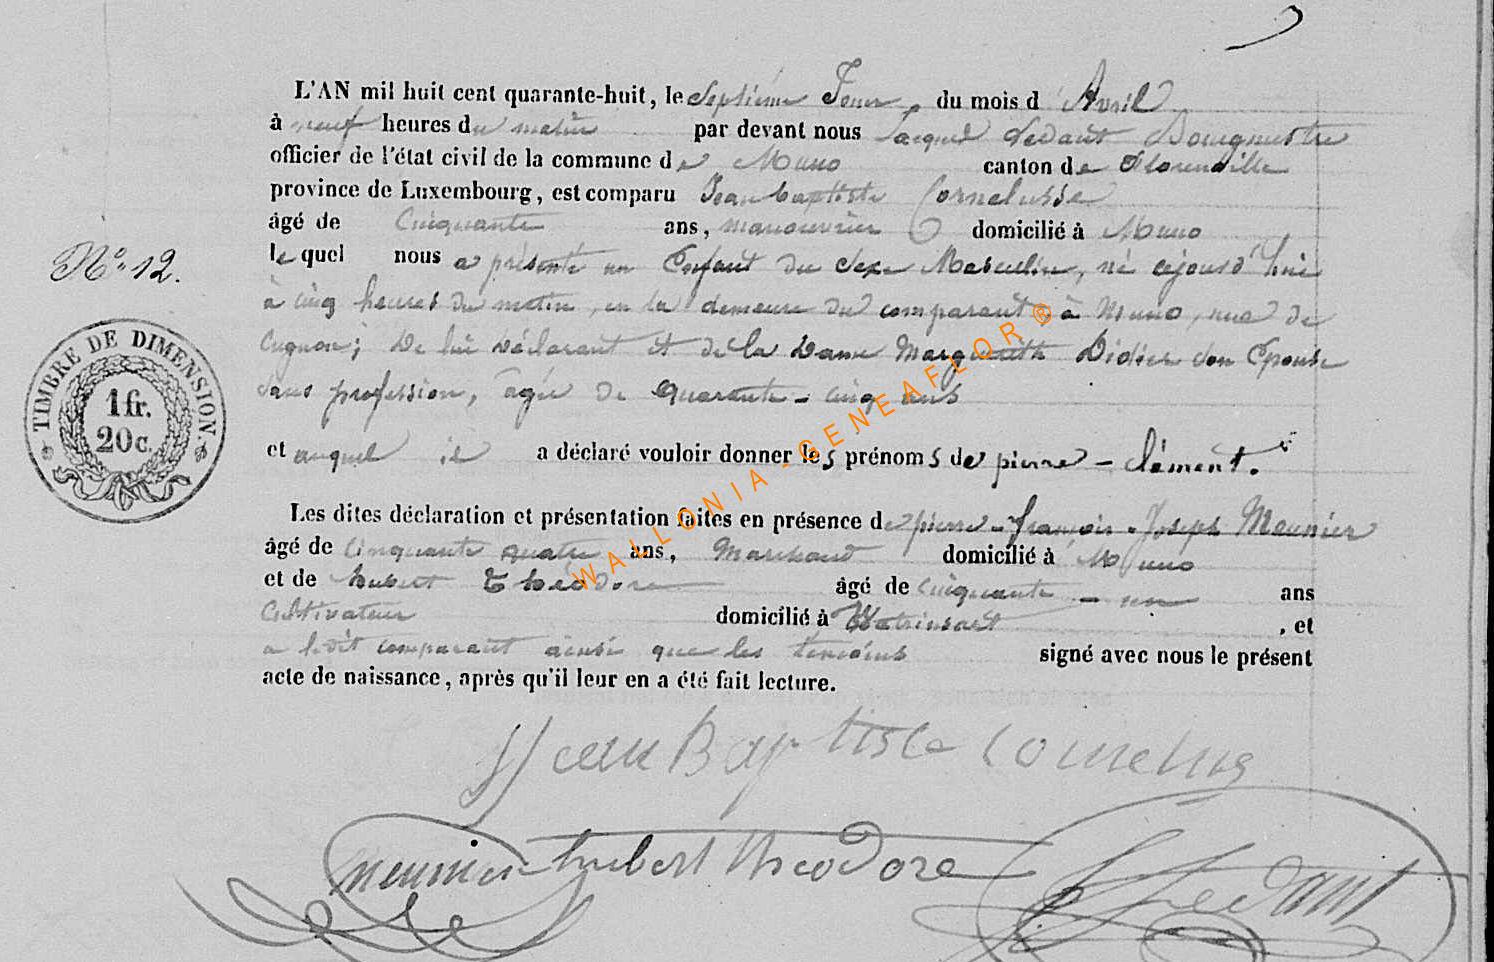 L'AN mil huit cent quarante-huit, le Septième Jour, du mois d'Avril
à neuf heures du matin par devant nous Jacques Sedant Bourgmestre
officier de l'état civil de la commune de Muno canton de Florenville
province de Luxembourg, est comparu Jean baptiste Cornelusse
âgé de Cinquante ans, manouvrier domicilié à Muno
le quel nous a présenté un Enfant du Sexe Masculin, né cejourd'hui
N° 12.
à cinq heures du matin, en la demeure du comparant, à Muno, rue de
Cugnon; De lui Déclarant et de la Dame Marguerite Didier son Epouse
sans profession, âgée de quarante-cinq ans
TIMBRE DE DIMENSION.
1 fr.
20 c.
et auquel il a déclaré vouloir donner les prénoms de pierre-clément.
Les dites déclaration et présentation faites en présence de pierre-françois-Joseph Meunier
âgé de Cinquante quatre ans, Marchand domicilié à Muno
et de hubert Théodore âgé de Cinquante-un ans
Cultivateur domicilié à Watrinsart, et
a ledit comparant ainsi que les témoins signé avec nous le présent
acte de naissance, après qu'il leur en a été fait lecture.
WALLONIA-GENEAFLOR®
Jean Baptiste Cornelus
meunier hubert theodore Sedant